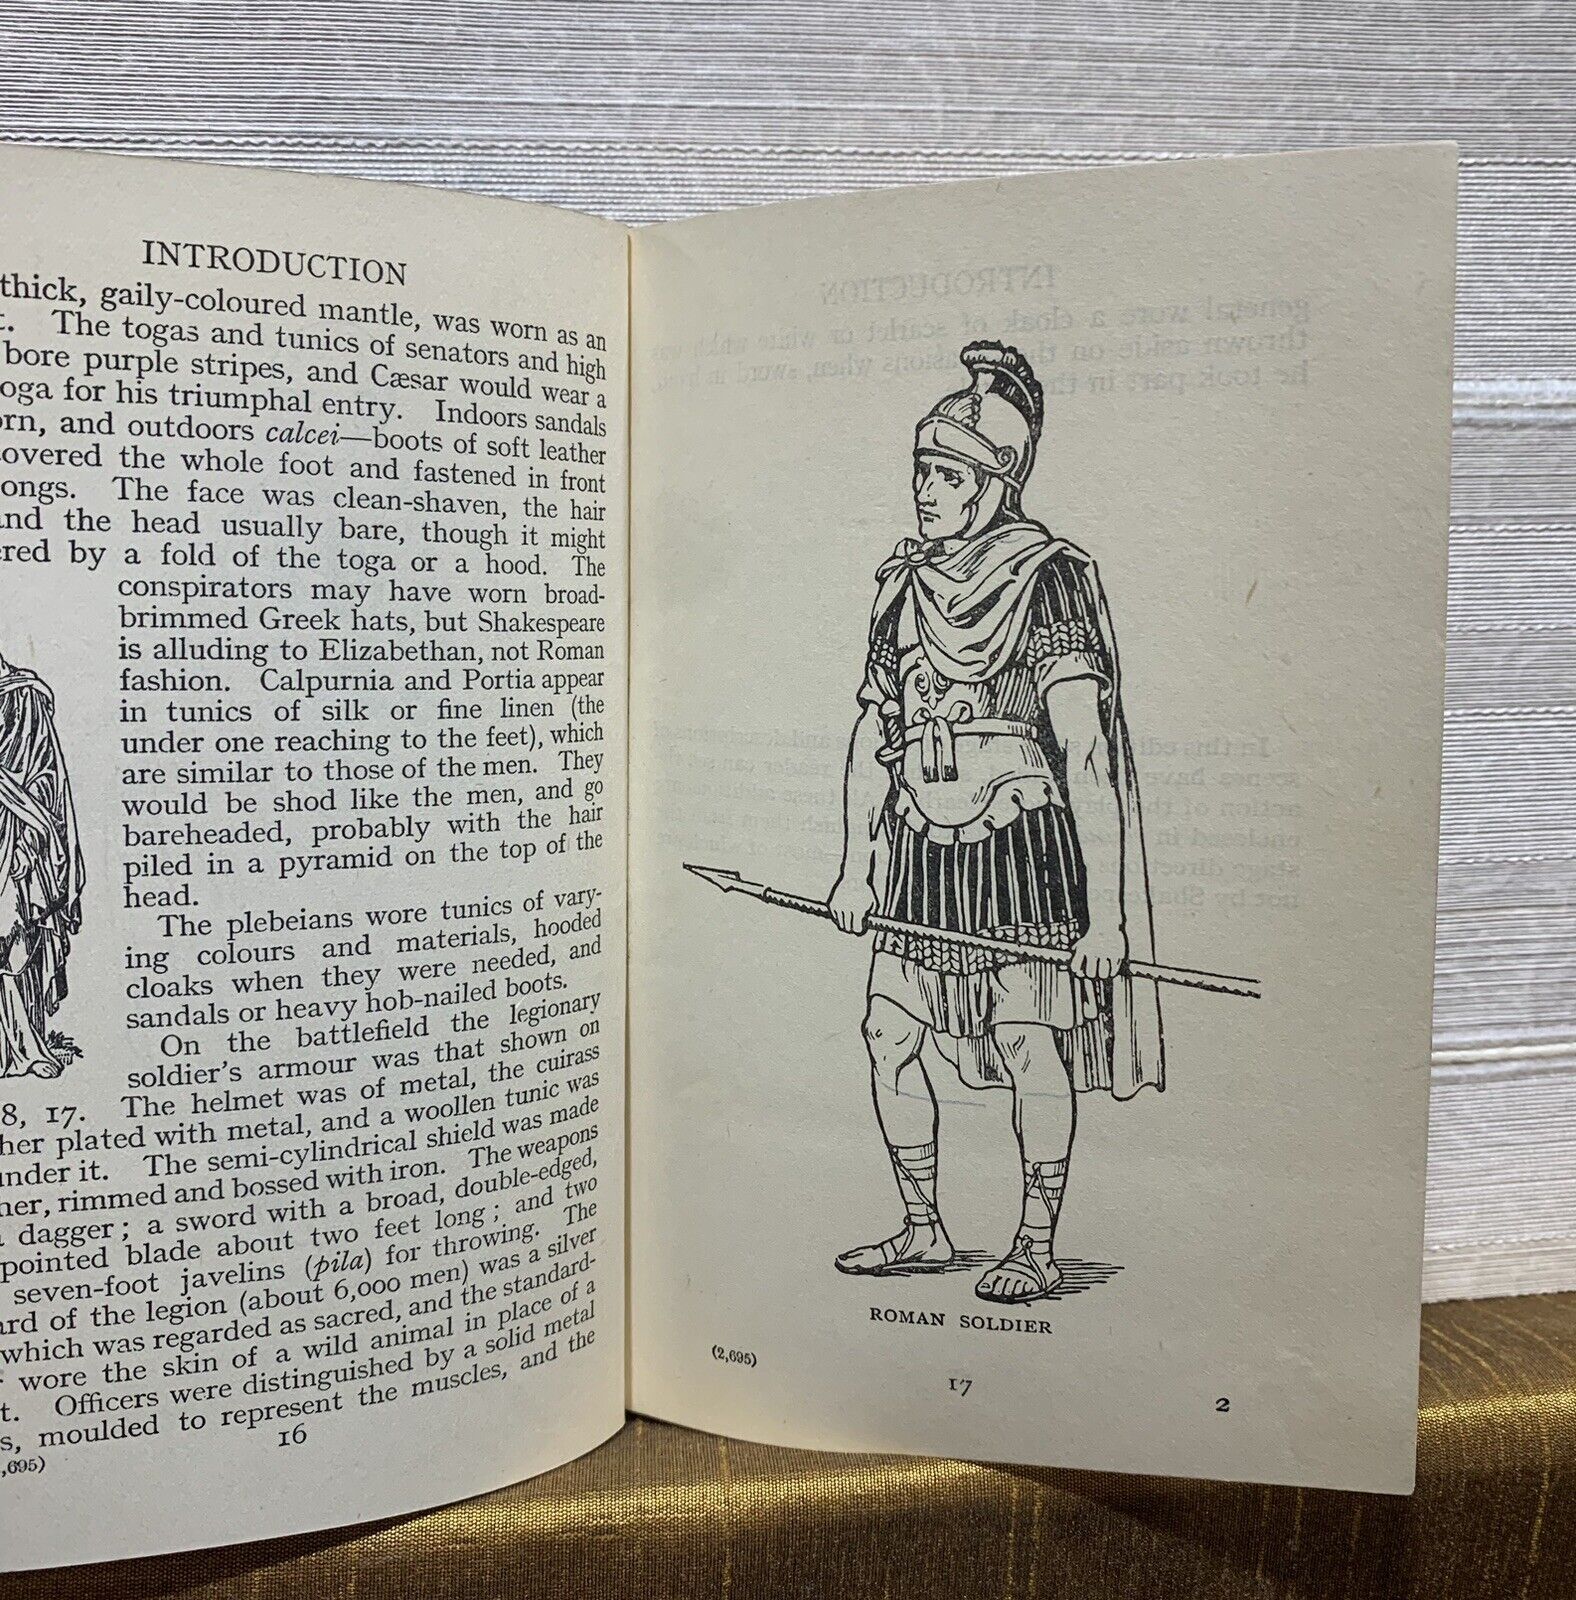 INTRODUCTION
thick, gaily-coloured mantle, was worn as an
t. The togas and tunics of senators and high
bore purple stripes, and Cæsar would wear a
oga for his triumphal entry. Indoors sandals
orn, and outdoors calcei—boots of soft leather
overed the whole foot and fastened in front
ongs. The face was clean-shaven, the hair
and the head usually bare, though it might
ered by a fold of the toga or a hood. The
conspirators may have worn broad-
brimmed Greek hats, but Shakespeare
is alluding to Elizabethan, not Roman
fashion. Calpurnia and Portia appear
in tunics of silk or fine linen (the
under one reaching to the feet), which
are similar to those of the men. They
would be shod like the men, and go
bareheaded, probably with the hair
piled in a pyramid on the top of the
head.
The plebeians wore tunics of vary-
ing colours and materials, hooded
cloaks when they were needed, and
sandals or heavy hob-nailed boots.
On the battlefield the legionary
soldier's armour was that shown on
8, 17. The helmet was of metal, the cuirass
her plated with metal, and a woollen tunic was
under it. The semi-cylindrical shield was made
her, rimmed and bossed with iron. The weapons
a dagger; a sword with a broad, double-edged,
pointed blade about two feet long; and two
seven-foot javelins (pila) for throwing. The
ard of the legion (about 6,000 men) was a silver
which was regarded as sacred, and the standard-
r wore the skin of a wild animal in place of a
t. Officers were distinguished by a solid metal
s, moulded to represent the muscles, and the
16
,695)
ROMAN SOLDIER
(2,695)
17
2